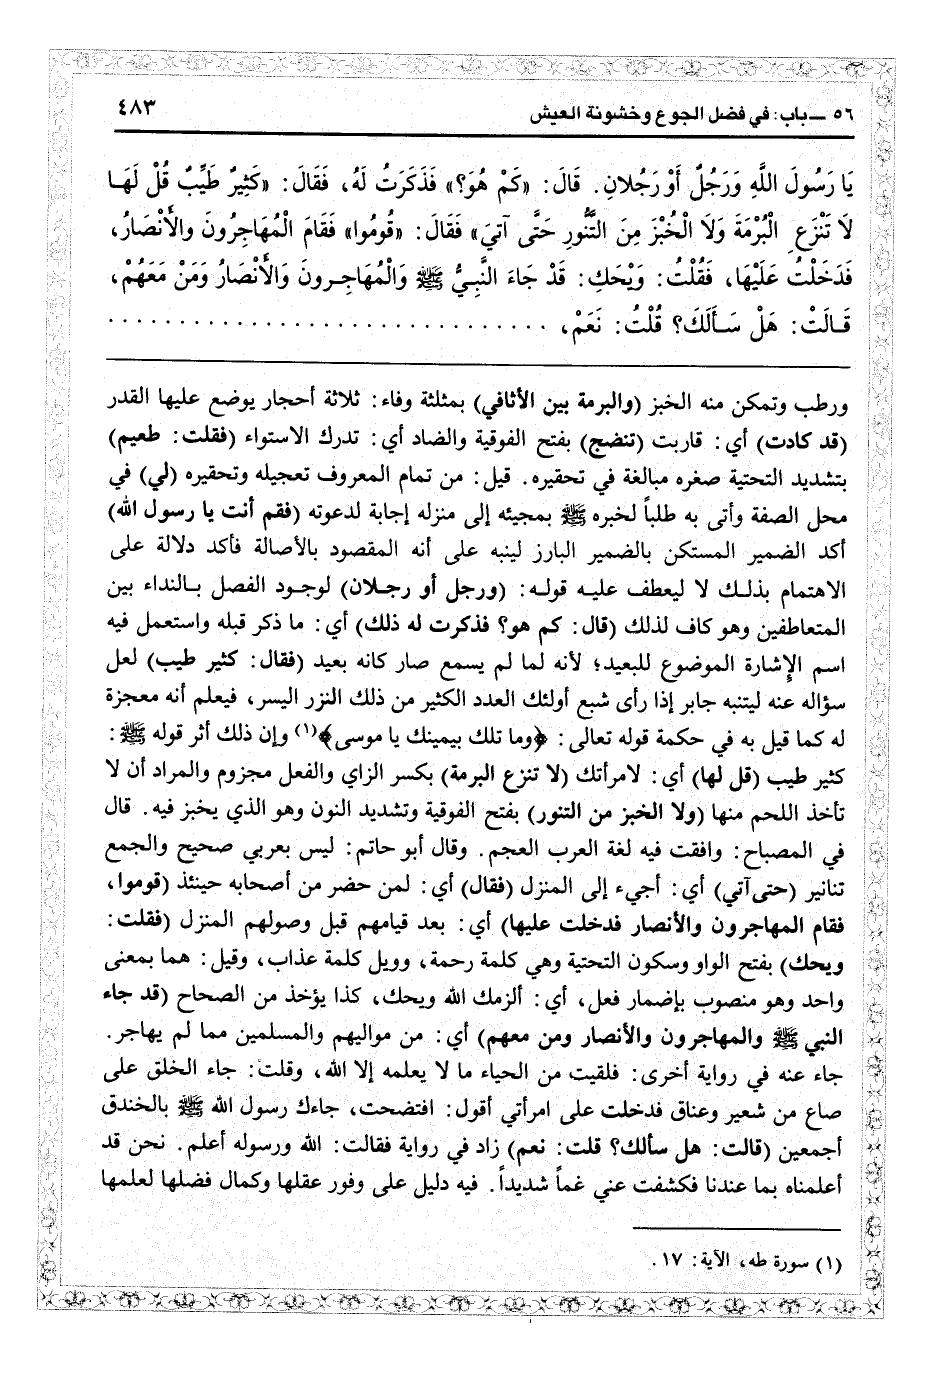 ٥٦ ــ باب: في فضل الجوع وخشونة العيش
٤٨٣
يَا رَسُولَ اللَّهِ وَرَجُلٌ أَوْ رَجُلانِ. قَالَ: «كَمْ هُوَ؟» فَذَكَرَتُ لَهُ، فَقَالَ: «كَثِيرٌ طَيِّبٌ قُلْ لَهَـا
لَا تَنْزَعِ الْبُرْمَةَ وَلَا الْخُبْزَ مِنَ التَّنُّورِ حَتَّى آتيَ» فَقَالَ: «قُومُوا» فَقَامَ الْمُهَاجِرُونَ والأَنْصَارُ،
فَدَخَلْتُ عَلَيْهَا، فَقُلْتُ: وَيْحَكِ: قَدْ جَاءَ النَّبِـيُّ ﷺ وَالْمُهَاجِـرونَ وَالأَنْصَارُ وَمَنْ مَعَهُمْ،
قَـالَتْ: هَلْ سَـأَلَكَ؟ قُلْتُ: نَعَمْ، . . . . . . . . . . . . . . . . . . . . . . . . . . . . . . .
ورطب وتمكن منه الخبز (والبرمة بين الأثافي) بمثلثة وفاء: ثلاثة أحجار يوضع عليها القدر
(قد كادت) أي: قاربت (تنضج) بفتح الفوقية والضاد أي: تدرك الاستواء (فقلت: طعيم)
بتشديد التحتية صغره مبالغة في تحقيره. قيل: من تمام المعروف تعجيله وتحقيره (لي) في
محل الصفة وأتى به طلباً لخبره ﷺ بمجيئه إلى منزله إجابة لدعوته (فقم أنت يا رسول الله)
أكد الضمير المستكن بالضمير البارز لينبه على أنه المقصود بالأصالة فأكد دلالة على
الاهتمام بذلـك لا ليعطف عليـه قولـه: (ورجل أو رجـلان) لوجـود الفصل بـالنداء بين
المتعاطفين وهو كاف لذلك (قال: كم هو؟ فذكرت له ذلك) أي: ما ذكر قبله واستعمل فيه
اسم الإشارة الموضوع للبعيد؛ لأنه لما لم يسمع صار كانه بعيد (فقال: كثير طيب) لعل
سؤاله عنه ليتنبه جابر إذا رأى شبع أولئك العدد الكثير من ذلك النزر اليسر، فيعلم أنه معجزة
له كما قيل به في حكمة قوله تعالى: ﴿وما تلك بيمينك يا موسى﴾(١) وإن ذلك أثر قوله ﷺ:
كثير طيب (قل لها) أي: لامرأتك (لا تنزع البرمة) بكسر الزاي والفعل مجزوم والمراد أن لا
تأخذ اللحم منها (ولا الخبز من التنور) بفتح الفوقية وتشديد النون وهو الذي يخبز فيه. قال
في المصباح: وافقت فيه لغة العرب العجم. وقال أبو حاتم: ليس بعربي صحيح والجمع
تنانير (حتى آتي) أي: أجيء إلى المنزل (فقال) أي: لمن حضر من أصحابه حينئذ (قوموا،
فقام المهاجرون والأنصار فدخلت عليها) أي: بعد قيامهم قبل وصولهم المنزل (فقلت:
ويحك) بفتح الواو وسكون التحتية وهي كلمة رحمة، وويل كلمة عذاب، وقيل: هما بمعنى
واحد وهو منصوب بإضمار فعل، أي: ألزمك الله ويحك، كذا يؤخذ من الصحاح (قد جاء
النبي ﷺ والمهاجرون والأنصار ومن معهم) أي: من مواليهم والمسلمين مما لم يهاجر.
جاء عنه في رواية أخرى: فلقيت من الحياء ما لا يعلمه إلا الله، وقلت: جاء الخلق على
صاع من شعير وعناق فدخلت على امرأتي أقول: افتضحت، جاءك رسول الله ﷺ بالخندق
أجمعين (قالت: هل سألك؟ قلت: نعم) زاد في رواية فقالت: الله ورسوله أعلم. نحن قد
أعلمناه بما عندنا فكشفت عني غماً شديداً. فيه دليل على وفور عقلها وكمال فضلها لعلمها
(١) سورة طه، الآية: ١٧.